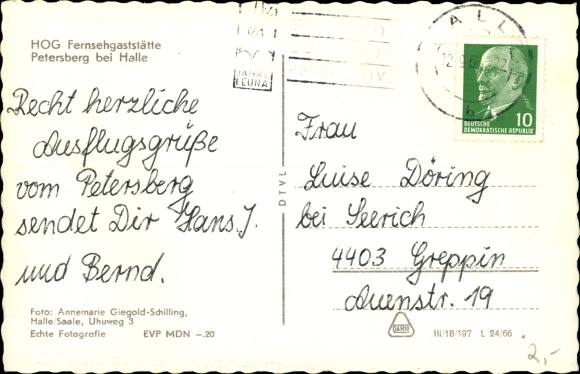 HOG Fernsehgaststätte
Petersberg bei Halle
JAHRE
LEUNA
HALL
12.9.6
10
DEUTSCHE
DEMOKRATISCHE REPUBLIK
Recht herzliche
Ausflugsgrüße
vom Petersberg
sendet Dir Hans J.
und Bernd.
DTVL
Frau
Luise Döring
bei Seerich
4403 Greppin
Auenstr. 19
Foto: Annemarie Giegold-Schilling,
Halle/Saale, Uhuweg 3
Echte Fotografie EVP MDN -.20
III/18/197 L 24/66
2,-